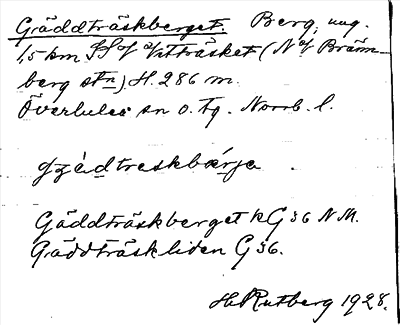 Gräddträskberget. Berg, ung.
1,5 km SSV of Vitträsket (N of Bränn-
berg stn). H. 286 m.
Överlulea sn o. tg. Norrb. l.
Gäddträskberget k G 36 NM.
Gräddträskliden G 36.
H. Rutberg 1928.